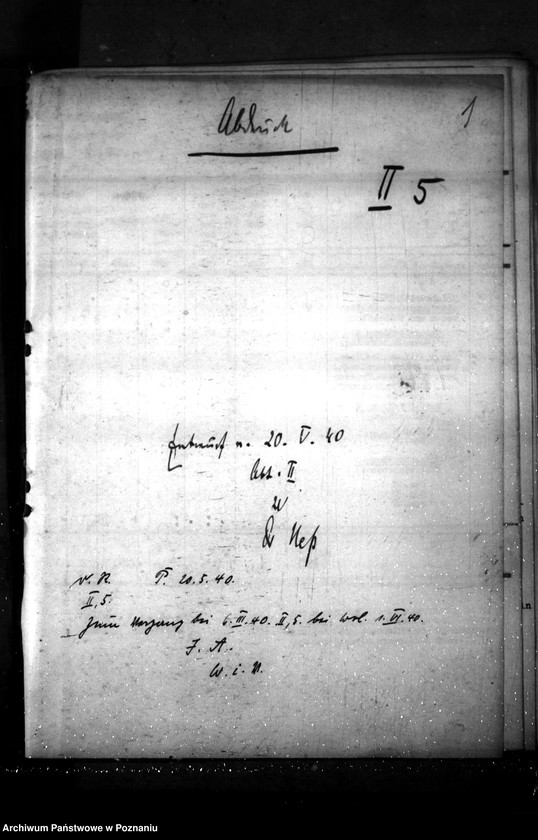 Abdruck
1
II 5
Entwurf v. 20. V. 40
Abt. II
Heß
v. R. P. 20.5.40.
II,5.
Zum Vorgang bei 6.III.40. II,5. bei Wvl. 1.VI.40.
I. A.
Archiwum Państwowe w Poznaniu